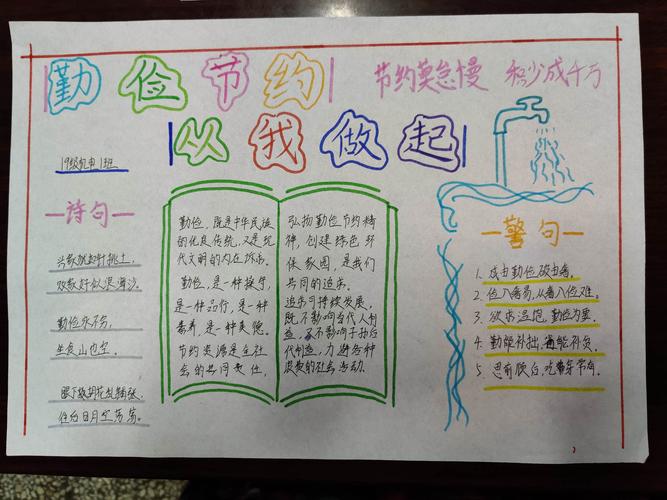 勤俭节约
节约莫怠慢 积少成千万
从我做起
19级机电1班
诗句
兴家犹如针挑土,
败家好似浪淘沙。
勤俭永不穷,
坐食山也空。
眼了数朝花乱插
住白日月空劳
勤俭,既是中华民族
的优良传统,又是现
代文明的内在
勤俭,是一种操守,
是一种品行,是一种
素养,是一种美德。
节约资源是全社
会的共同责任
弘扬勤俭节约精
神,创建绿色环
保家园,是我们
共同的追求。
追求可持续发展,
既不影响当代人制
造,又不影响子孙后
代制造,力避各种
浪费的社会活动。
警句
1. 成由勤俭破由奢。
2. 俭入奢易,从奢入俭难。
3. 欲求温饱,勤俭为要。
4. 勤能补拙,俭能补贫。
5. 思前顾后,吃穿常有。